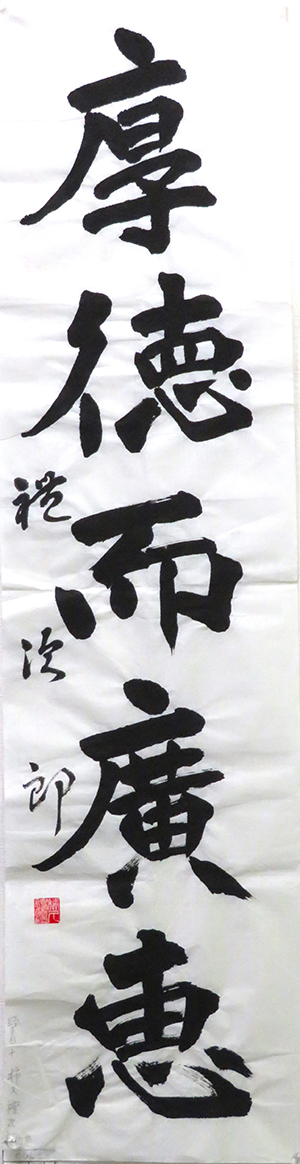 厚德而廣恵
禮次郎